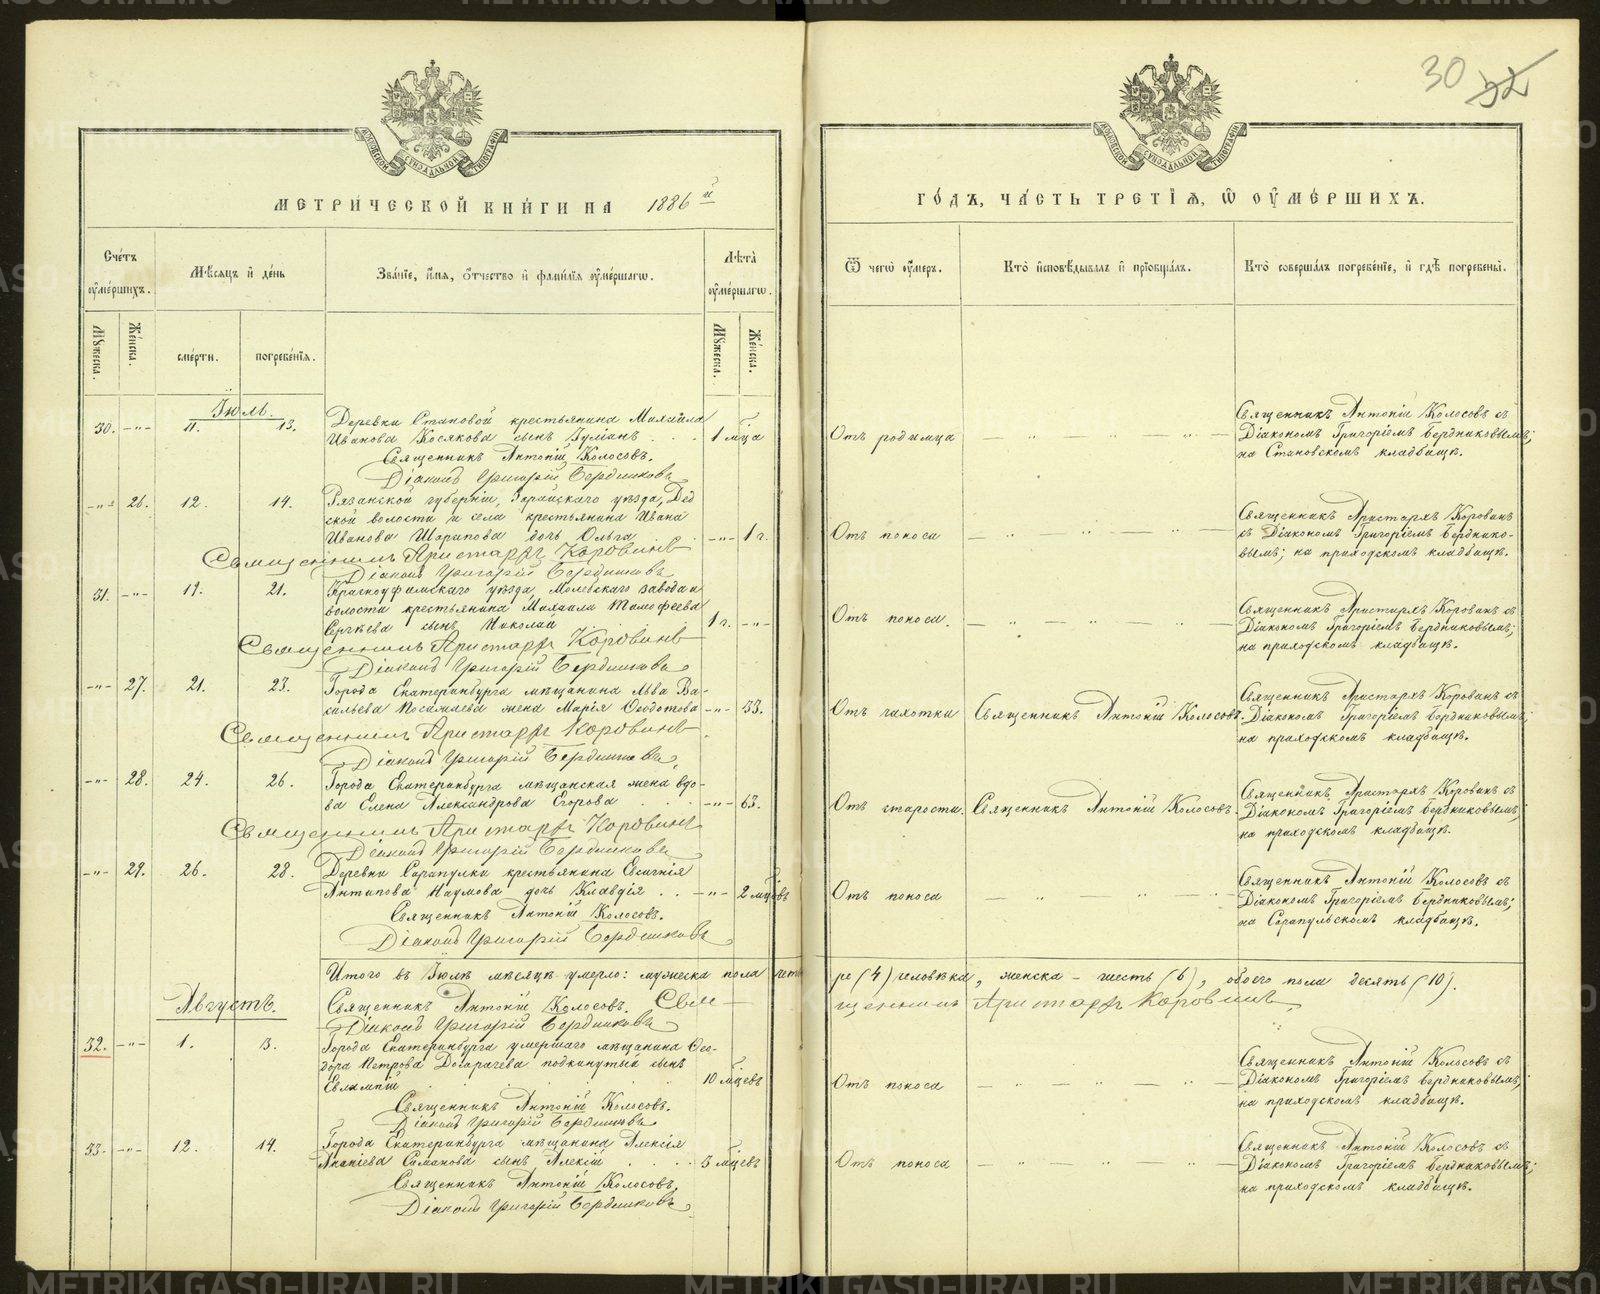 30 32
МОСКОВСКОЙ СѴНОДАЛЬНОЙ ТИПОГРАФІИ
МОСКОВСКОЙ СѴНОДАЛЬНОЙ ТИПОГРАФІИ
МЕТРИ́ЧЕСКОЙ КНИ́ГИ НА 1886й
ГО́ДЪ, ЧА́СТЬ ТРЕТІѦ, Ѿ ОУМЕ́РШИХЪ.
Сче́тъ оумершихъ.
Мѣ́сяцъ и де́нь
Зва́нїе, и́мя, о́тчество и фами́лїя оуме́ршагѡ.
Лѣта̀ оуме́ршагѡ.
Ѿ чегѡ̀ оу́меръ.
Кто̀ исповѣ́дывалъ и прїобща́лъ.
Кто̀ соверша́лъ погребе́нїе, и гдѣ̀ погребены̀.
Мꙋжеска. Же́нска. сме́рти. погребе́нїѧ. Мꙋжеска. Же́нска.
Іюль.
30. -"- 11. 13. Деревни Становой крестьянина Михаила
Иванова Косякова сынъ Іуліанъ . . . 1 мѣца
Священникъ Антоній Колосовъ.
Діаконъ Григорій Бердниковъ
Отъ родимца
Священникъ Антоній Колосовъ съ
Діакономъ Григоріемъ Бердниковымъ;
на Становскомъ кладбищѣ.
-"- 26. 12. 14. Рязанской губерніи, Зарайскаго уѣзда, Дѣд
ской волости и села крестьянина Ивана
Иванова Шарапова дочь Ольга -"- 1 г.
Священникъ Аристархъ Коровинъ
Діаконъ Григорій Бердниковъ
Отъ поноса
Священникъ Аристархъ Коровинъ
съ Діакономъ Григоріемъ Берднико-
вымъ; на приходскомъ кладбищѣ.
31. -"- 19. 21. Красноуфимскаго уѣзда, Молебскаго завода и
волости крестьянина Михаила Тимофеева
Сергѣева сынъ Николай 1 г. -"-
Священникъ Аристархъ Коровинъ
Діаконъ Григорій Бердниковъ
Отъ поноса.
Священникъ Аристархъ Коровинъ съ
Діакономъ Григоріемъ Бердниковымъ;
на приходскомъ кладбищѣ.
-"- 27. 21. 23. Города Екатеринбурга мѣщанина Льва Ва-
сильева жена Марія Ѳеодотова -"- 33.
Священникъ Аристархъ Коровинъ
Діаконъ Григорій Бердниковъ
Отъ чахотки Священникъ Антоній Колосовъ.
Священникъ Аристархъ Коровинъ съ
Діакономъ Григоріемъ Бердниковымъ;
на приходскомъ кладбищѣ.
-"- 28. 24. 26. Города Екатеринбурга мѣщанская жена вдо-
ва Елена Александрова Егорова . . . -"- 63.
Священникъ Аристархъ Коровинъ
Діаконъ Григорій Бердниковъ
Отъ старости. Священникъ Антоній Колосовъ.
Священникъ Аристархъ Коровинъ съ
Діакономъ Григоріемъ Бердниковымъ;
на приходскомъ кладбищѣ.
-"- 29. 26. 28. Деревни Сарапулки крестьянина Евсигнія
Антипова Наумова дочь Клавдія . . -"- 2 мѣцовъ
Священникъ Антоній Колосовъ.
Діаконъ Григорій Бердниковъ
Отъ поноса
Священникъ Антоній Колосовъ съ
Діакономъ Григоріемъ Бердниковымъ;
на Сарапульскомъ кладбищѣ.
Итого въ Іюлѣ мѣсяцѣ умерло: мужеска пола четы
ре (4) человѣка, женска - шесть (6), обоего пола десять (10).
Священникъ Антоній Колосовъ. Свя-
щенникъ Аристархъ Коровинъ
Діаконъ Григорій Бердниковъ
Августъ.
32. -"- 1. 3. Города Екатеринбурга умершаго мѣщанина Ѳео-
дора Петрова подкинутый сынъ
Евлампій 10 мѣцевъ
Священникъ Антоній Колосовъ.
Діаконъ Григорій Бердниковъ
Отъ поноса
Священникъ Антоній Колосовъ съ
Діакономъ Григоріемъ Бердниковымъ;
на приходскомъ кладбищѣ.
33. -"- 12. 14. Города Екатеринбурга мѣщанина Алексія
Ананіева Симанова сынъ Алексій . . . 5 мѣцевъ
Священникъ Антоній Колосовъ.
Діаконъ Григорій Бердниковъ
Отъ поноса
Священникъ Антоній Колосовъ съ
Діакономъ Григоріемъ Бердниковымъ;
на приходскомъ кладбищѣ.
METRIKI.GASO-URAL.RU